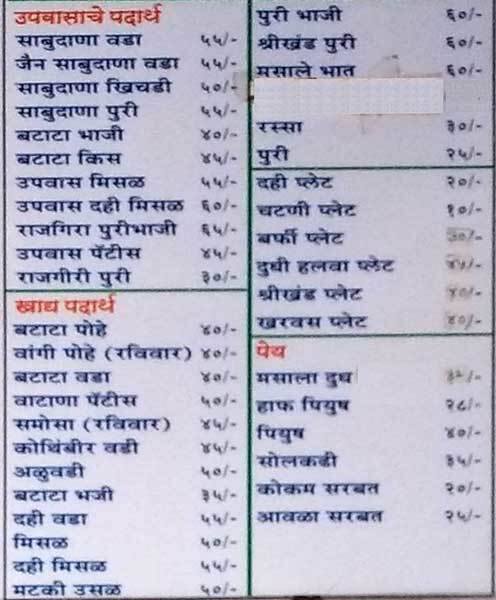 उपवासाचे पदार्थ
साबुदाणा वडा ५५/-
जैन साबुदाणा वडा ५५/-
साबुदाणा खिचडी ५०/-
साबुदाणा पुरी ५५/-
बटाटा भाजी ४०/-
बटाटा किस ४५/-
उपवास मिसळ ५५/-
उपवास दही मिसळ ६०/-
राजगिरा पुरीभाजी ६५/-
उपवास पॅटीस ४५/-
राजगीरी पुरी ३०/-
खाद्य पदार्थ
बटाटा पोहे ४०/-
वांगी पोहे (रविवार) ४०/-
बटाटा वडा ४०/-
वाटाणा पॅटीस ५०/-
समोसा (रविवार) ४५/-
कोथिंबीर वडी ४५/-
अळुवडी ५०/-
बटाटा भजी ३५/-
दही वडा ५५/-
मिसळ ५०/-
दही मिसळ ५५/-
मटकी उसळ ५०/-
पुरी भाजी ६०/-
श्रीखंड पुरी ६०/-
मसाले भात ६०/-
रस्सा ३०/-
पुरी २५/-
दही प्लेट २०/-
चटणी प्लेट १०/-
बर्फी प्लेट
दुधी हलवा प्लेट
श्रीखंड प्लेट ४०/-
खरवस प्लेट ४०/-
पेय
मसाला दुध
हाफ पियुष २८/-
पियुष ४०/-
सोलकडी ३५/-
कोकम सरबत २०/-
आवळा सरबत २५/-